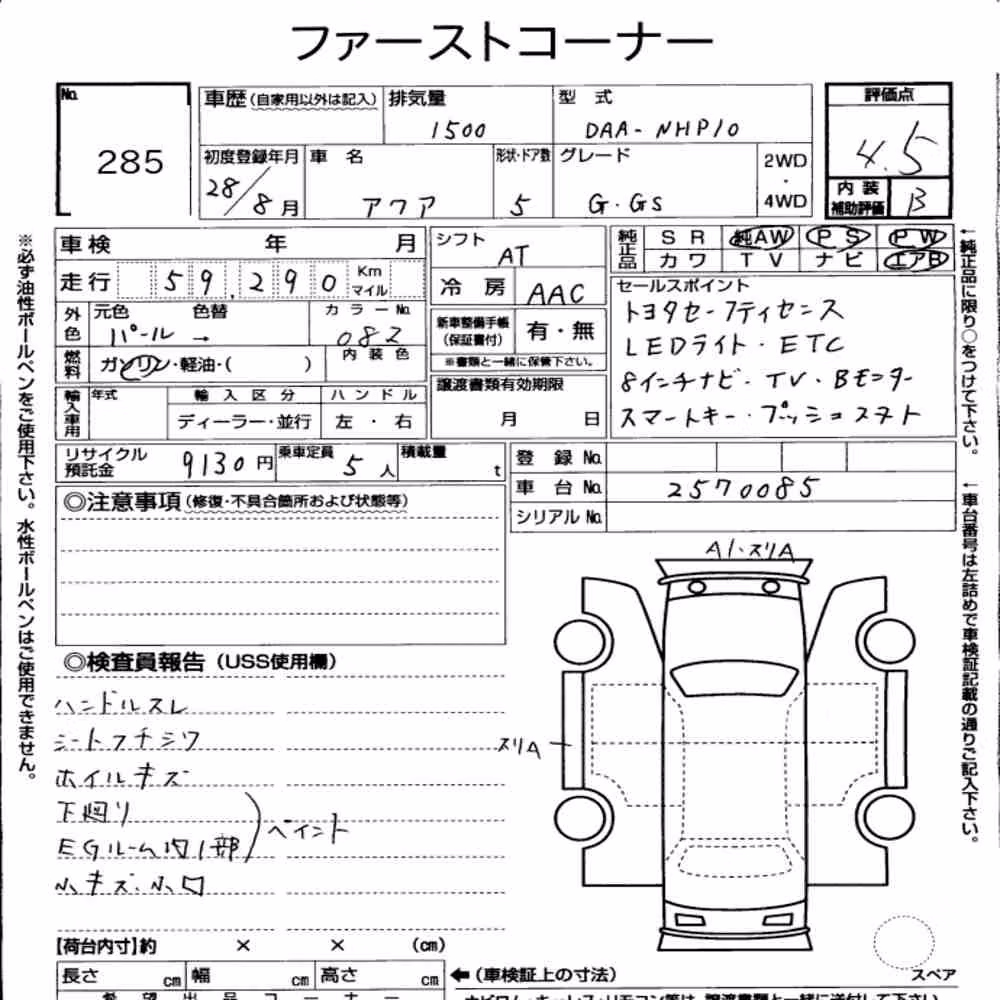 ファーストコーナー
No. 285
車歴(自家用以外は記入) 排気量 1500 型式 DAA-NHP10 評価点 4.5
初度登録年月 28/8月 車名 アクア 形状・ドア数 5 グレード G・GS 2WD・4WD 内装補助評価 B
車検 年 月 シフト AT 純正品 SR 純AW PS PW
カワ TV ナビ エアB
走行 59,290 Km マイル 冷房 AAC
外色 元色 パール → 色替 カラーNo. 082
新車整備手帳(保証書付) 有・無
※書類と一緒に保管下さい。
燃料 ガソリン・軽油・( ) 内装色
セールスポイント
トヨタセーフティセンス
LEDライト・ETC
8インチナビ・TV・Bモニター
スマートキー・プッシュスタート
輸入車用 年式 輸入区分 ハンドル
ディーラー・並行 左・右
譲渡書類有効期限
月 日
リサイクル預託金 9130円 乗車定員 5人 積載量 t
登録No.
車台No. 2570085
シリアルNo.
◎注意事項(修復・不具合箇所および状態等)
◎検査員報告(USS使用欄)
ハンドルスレ
シートフチシワ
ホイルキズ
下廻り
EGルーム内1部 ペイント
小キズ・小凹
A1・スリA
スリA
【荷台内寸】約 × × (cm)
長さ cm 幅 cm 高さ cm ←(車検証上の寸法)
スペア
希望出品コーナー
※必ず油性ボールペンをご使用下さい。水性ボールペンはご使用できません。
←純正品に限り○をつけて下さい。
←車台番号は左詰めで車検証記載の通りご記入下さい。